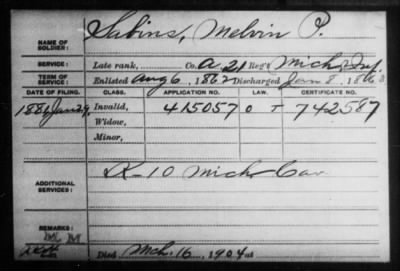 NAME OF SOLDIER: Sabins, Melvin P.
SERVICE: Late rank, Co. A. 21 Reg't Mich. Inf.
TERM OF SERVICE: Enlisted Aug 6, 1862 Discharged Jan 8, 186
DATE OF FILING. CLASS. APPLICATION NO. LAW. CERTIFICATE NO.
Invalid, 415057 O 742587
Widow,
Minor,
ADDITIONAL SERVICES: K-10 Mich Cav
REMARKS: M. M
Died Mch. 16, 1904 at